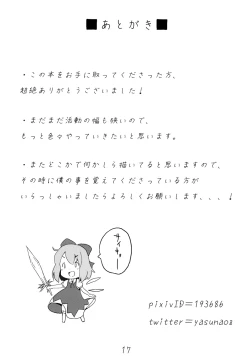 ■あとがき■
・この本をお手に取ってくださった方、
超絶ありがとうございました！
・まだまだ活動の幅も狭いので、
もっと色々やっていきたいと思います。
・またどこかで何かしら描いてると思いますので、
その時に僕の事を覚えてくださっている方が
いらっしゃいましたらよろしくお願いします、、、！
pixivID=193686
twitter=yasunaoz
17